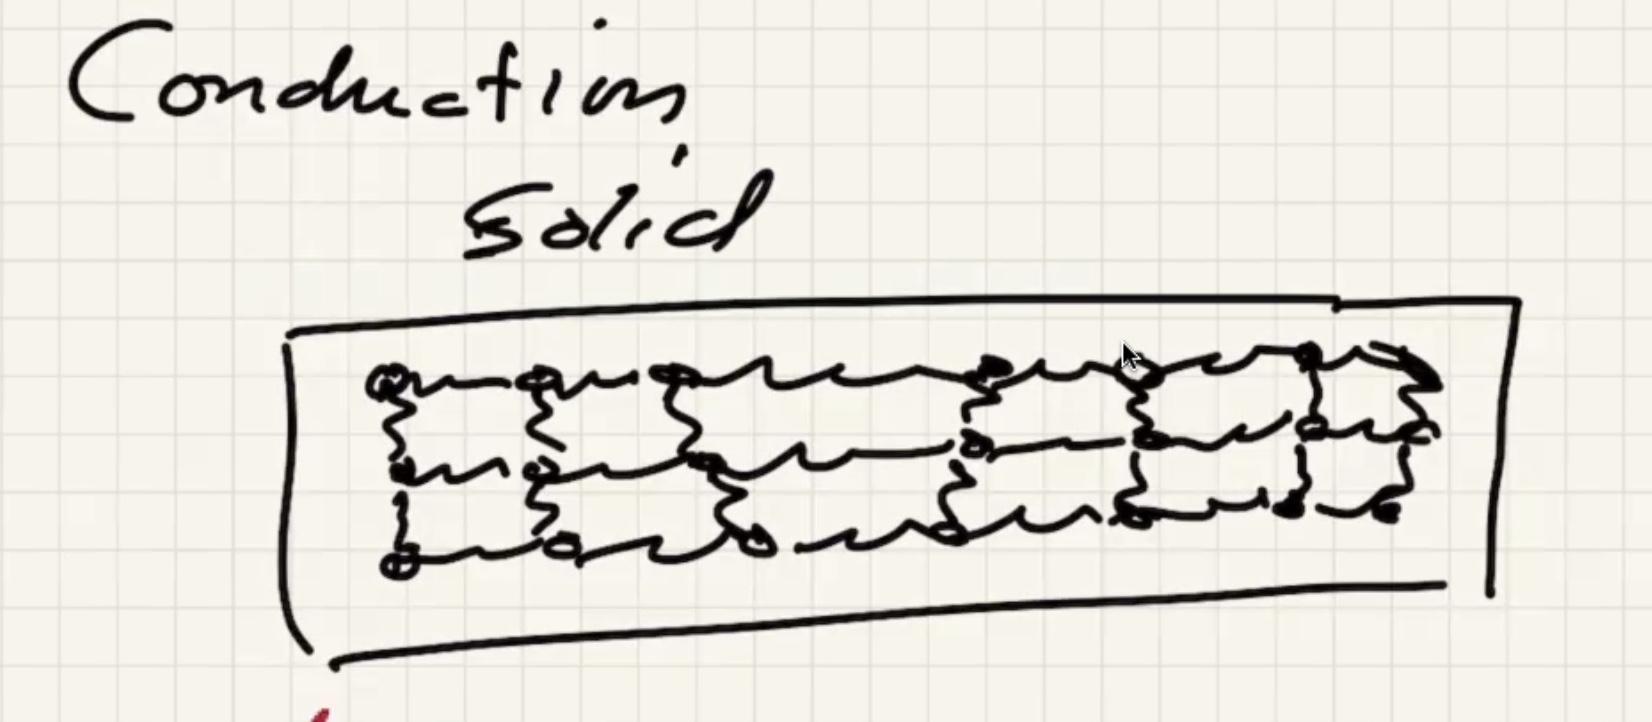 Conduction
Solid